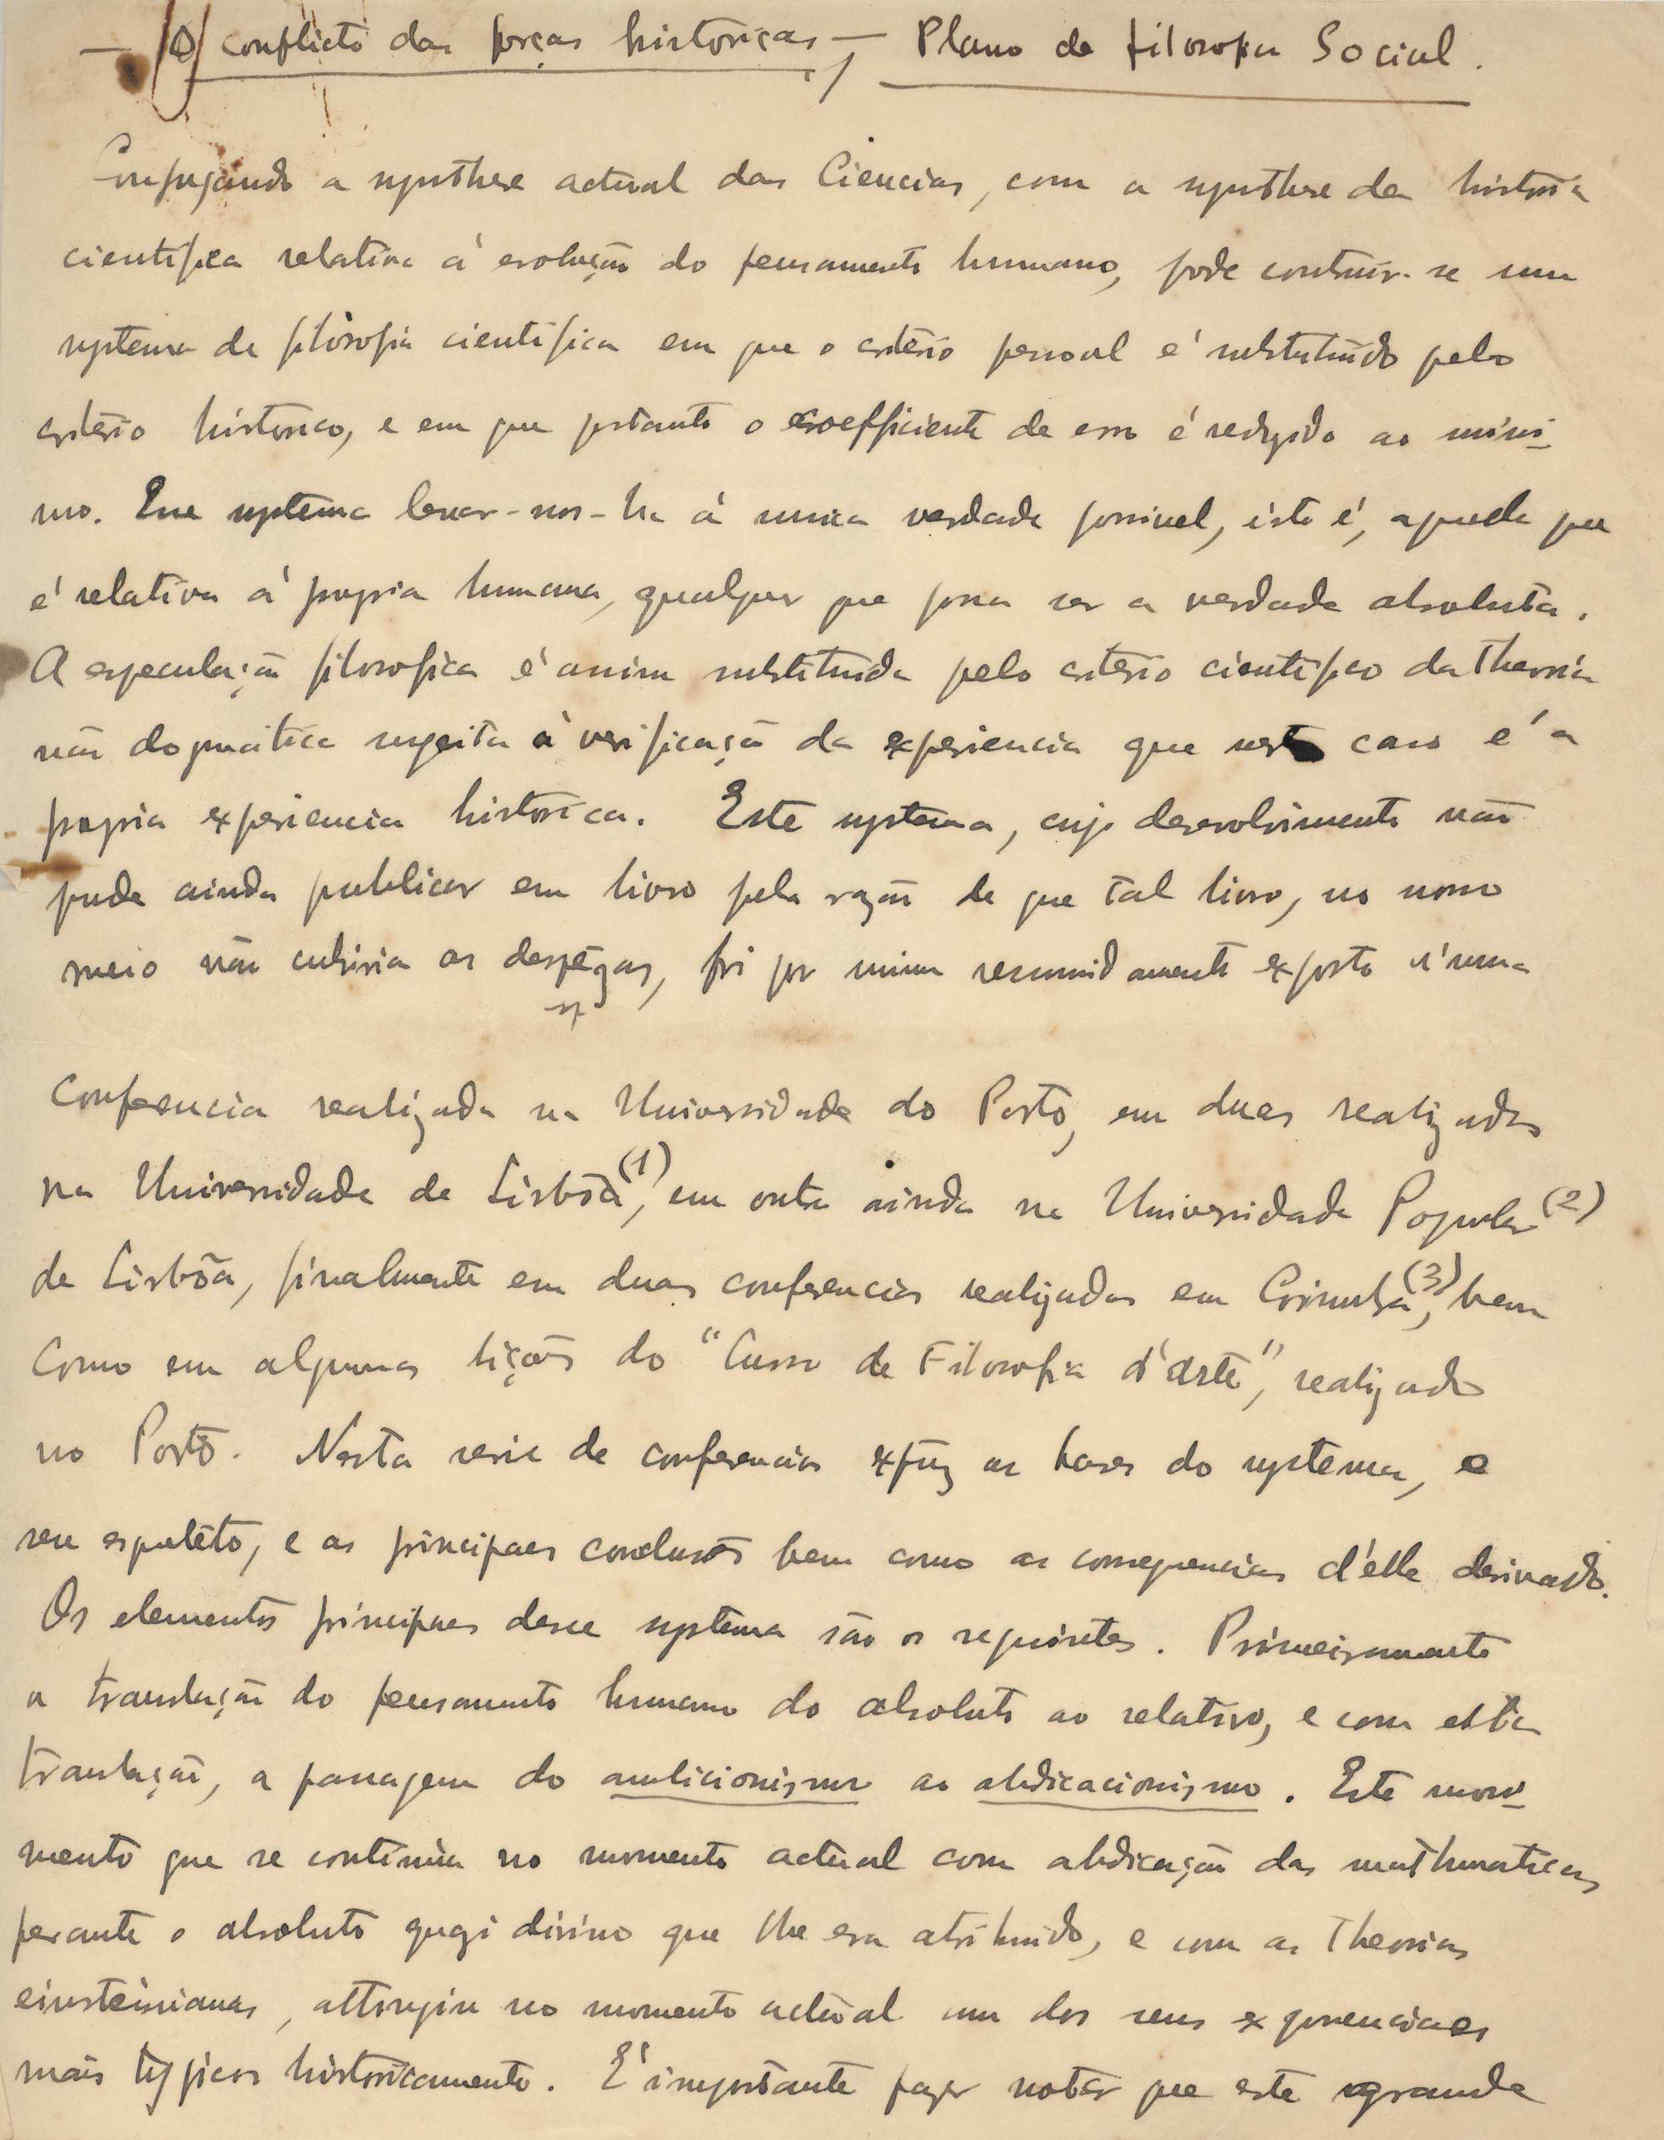 — O conflicto das forças historicas —, Plano de filosofia Social.
Conjugando a synthese actual das Ciencias, com a synthese da historia
cientifica relativa á evolução do pensamento humano, pode contruir-se um
systema de filòsofia cientifica em que o criterio pessoal é substituido pelo
criterio historico, e em que portanto o coefficiente de erro é reduzido ao mini-
mo. Esse systema levar-nos-ha á unica verdade possivel, isto é, aquela que
é relativa á propria humana, qualquer que possa ser a verdade absoluta.
A especulação filosofica é assim substituida pelo criterio cientifico da theoria
não dogmatica sugeita á verificação da experiencia que neste caso é a
propria experiencia historica. Este systema, cujo desenvolvimento não
pude ainda publicar em livro pela razão de que tal livro, no nosso
meio não cubriria as despezas, foi por mim resumidamente exposto n'uma
Conferencia realizada na Universidade do Porto, em duas realizadas
na Universidade de Lisbôa (1), em outra ainda na Universidade Popular (2)
de Lisbôa, finalmente em duas conferencias realizadas em Coimbra (3), bem
como em algumas lições do "Curso de Filosofia d'Arte", realizado
no Porto. Nesta serie de conferencias expuz as bases do systema, o
seu esqueleto, e as principaes conclusões bem como as consequencias d'elle derivado.
Os elementos principaes desse systema são os seguintes. Primeiramente
a translação do pensamento humano do absoluto ao relativo, e com esta
translação, a passagem do ambicionismo ao abdicacionismo. Este movi-
mento que se continúa no momento actual com abdicação das mathematicas
perante o absoluto quazi divino que lhe era atribuido, e com as theorias
einsteinianas, attingiu no momento actual um dos seus exponenciaes
mais typicos historicamente. É importante fazer notar que este grande